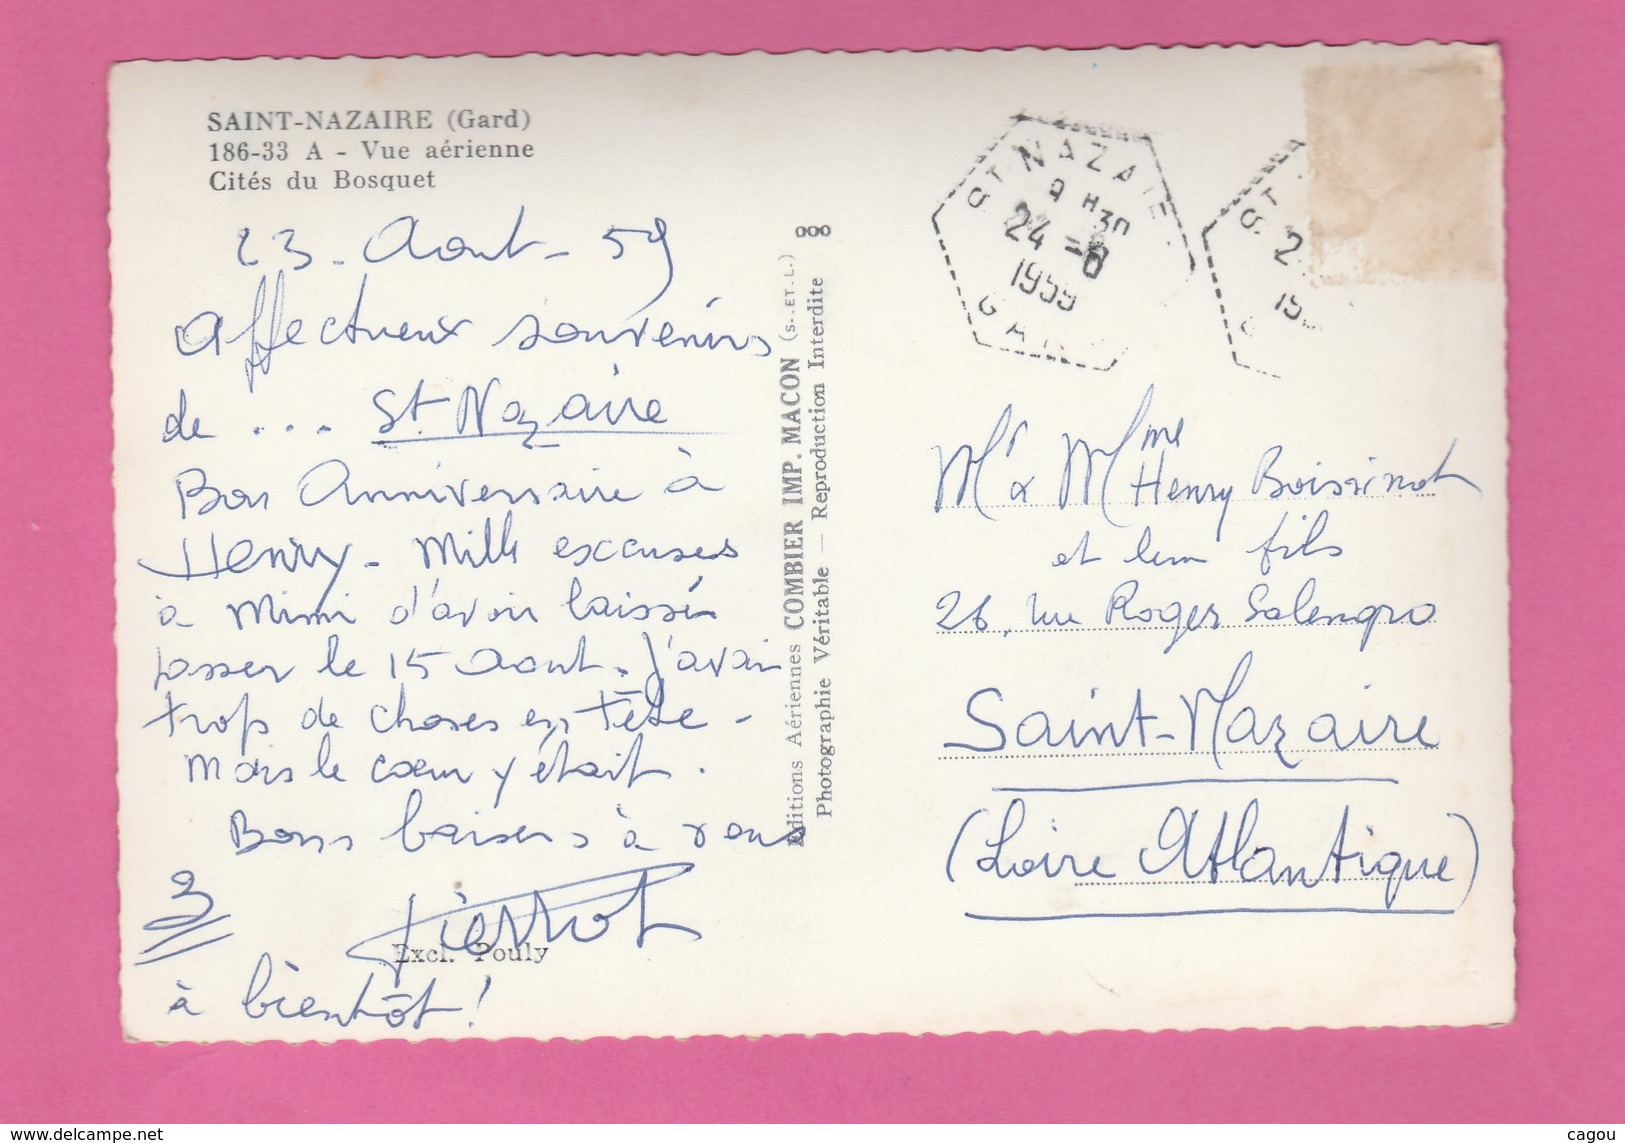 SAINT-NAZAIRE (Gard)
186-33 A - Vue aérienne
Cités du Bosquet
23 - Aout - 59
Affectueux souvenirs
de ... St. Nazaire
Bon Anniversaire à
Henry - Mille excuses
à Mimi d'avoir laissé
passer le 15 Aout. J'avais
trop de choses en tête -
Mais le cœur y était.
Bons baisers à vous
3
Pierrot
Excl. Pouly
à bientôt !
Editions Aériennes COMBIER IMP. MACON (S.-ET-L.)
Photographie Véritable — Reproduction Interdite
ST NAZAIRE
9 H 30
24 - 8
1959
GARD
ST
2
19
Mr & Mme Henry Boissinot
et leur fils
26, rue Roger Salengro
Saint-Nazaire
(Loire Atlantique)
delcampe.net
cagou